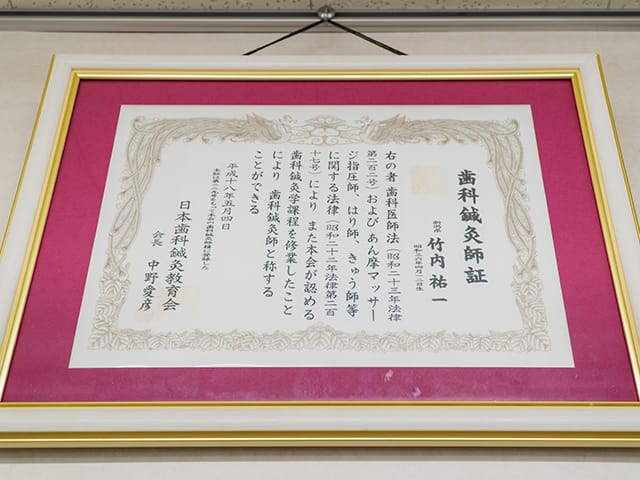 歯科鍼灸師証
竹内祐一
右の者 歯科医師法（昭和二十三年法律
第二百二号）および あん摩マッサー
ジ指圧師、はり師、きゅう師等
に関する法律（昭和二十二年法律第二百
十七号）により また本会が認める
歯科鍼灸学課程を修業したこと
により 歯科鍼灸師と称する
ことができる
平成十八年五月四日
日本歯科鍼灸教育会
会長 中野愛彦